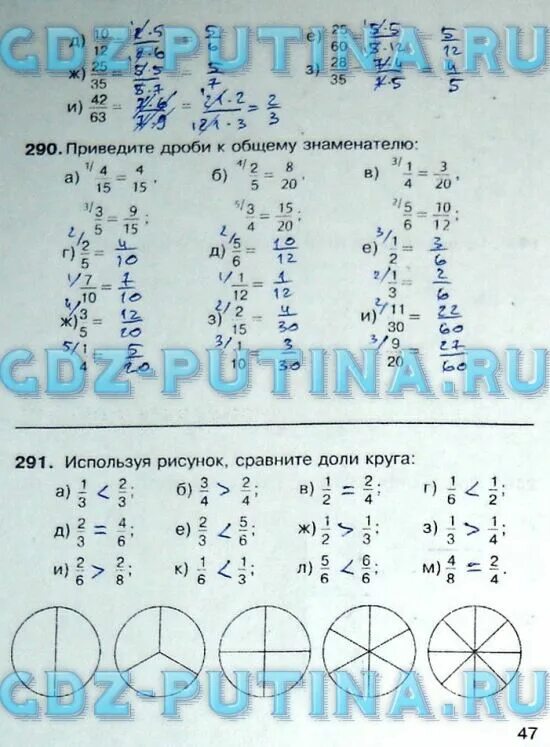 д) 10/12 = 2·5/2·6 = 5/6 е) 25/60 = 5·5/5·12 = 5/12
ж) 25/35 = 5·5/5·7 = 5/7 з) 28/35 = 7·4/7·5 = 4/5
и) 42/63 = 7·6/7·9 = 21·2/21·3 = 2/3
290. Приведите дроби к общему знаменателю:
а) 1/ 4/15 = 4/15, б) 4/ 2/5 = 8/20, в) 3/ 1/4 = 3/20,
3/ 3/5 = 9/15; 5/ 3/4 = 15/20; 2/ 5/6 = 10/12;
г) 2/ 2/5 = 4/10 д) 2/ 5/6 = 10/12 е) 3/ 1/2 = 3/6
1/ 7/10 = 7/10 1/ 1/12 = 1/12 2/ 1/3 = 2/6
ж) 4/ 3/5 = 12/20 з) 2/ 2/15 = 4/30 и) 2/ 11/30 = 22/60
5/ 1/4 = 5/20 3/ 1/10 = 3/30 3/ 9/20 = 27/60
GDZ-PUTINA.RU
291. Используя рисунок, сравните доли круга:
а) 1/3 < 2/3; б) 3/4 > 2/4; в) 1/2 = 2/4; г) 1/6 < 1/2;
д) 2/3 = 4/6; е) 2/3 < 5/6; ж) 1/2 > 1/3; з) 1/3 > 1/4;
и) 2/6 > 2/8; к) 1/6 < 1/3; л) 5/6 < 6/6; м) 4/8 = 2/4.
GDZ-PUTINA.RU
47